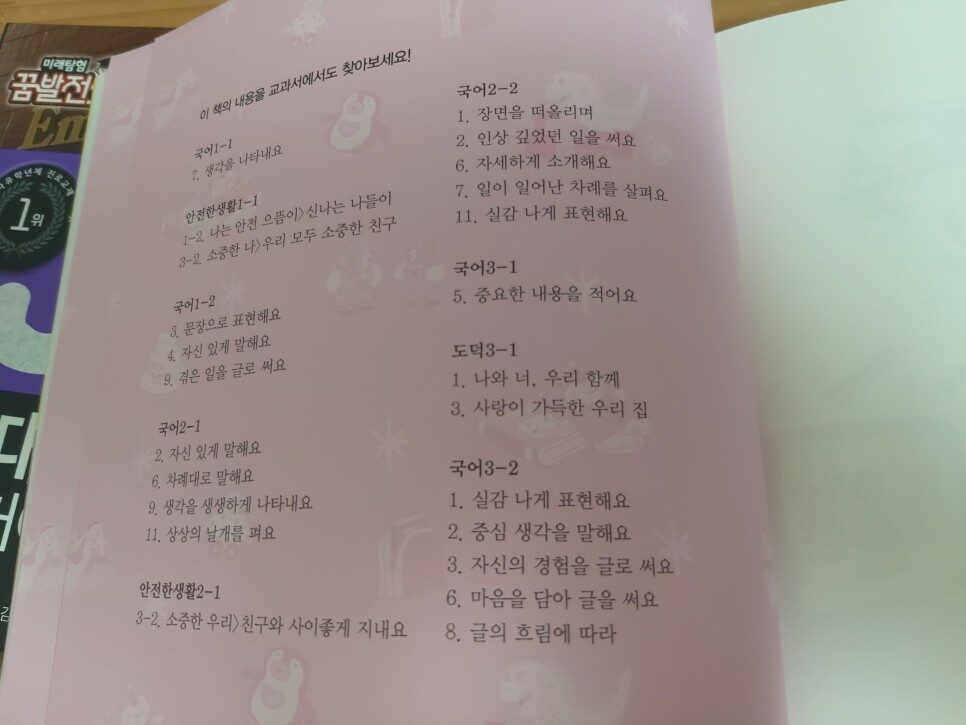 미래탐험
꿈발전
Em
1위
이 책의 내용을 교과서에서도 찾아보세요!
국어1-1
7. 생각을 나타내요
안전한생활1-1
1-2. 나는 안전 으뜸이>신나는 나들이
3-2. 소중한 나>우리 모두 소중한 친구
국어1-2
3. 문장으로 표현해요
4. 자신 있게 말해요
9. 겪은 일을 글로 써요
국어2-1
2. 자신 있게 말해요
6. 차례대로 말해요
9. 생각을 생생하게 나타내요
11. 상상의 날개를 펴요
안전한생활2-1
3-2. 소중한 우리>친구와 사이좋게 지내요
국어2-2
1. 장면을 떠올리며
2. 인상 깊었던 일을 써요
6. 자세하게 소개해요
7. 일이 일어난 차례를 살펴요
11. 실감 나게 표현해요
국어3-1
5. 중요한 내용을 적어요
도덕3-1
1. 나와 너, 우리 함께
3. 사랑이 가득한 우리 집
국어3-2
1. 실감 나게 표현해요
2. 중심 생각을 말해요
3. 자신의 경험을 글로 써요
6. 마음을 담아 글을 써요
8. 글의 흐름에 따라